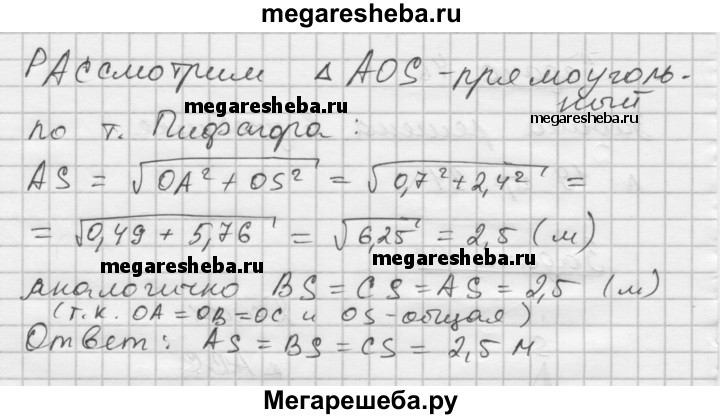 megaresheba.ru
РАссмотрим △ AOS - прямоуголь-
ный
megaresheba.ru
megaresheba.ru
по т. Пифагора:
AS = √OA² + OS² = √0,7² + 2,4² =
= √0,49 + 5,76 = √6,25 = 2,5 (м)
megaresheba.ru
megaresheba.ru
аналогично BS = CS = AS = 2,5 (м)
(т.к. OA = OB = OC и OS - общая)
Ответ: AS = BS = CS = 2,5 м
Мегарешеба.ру